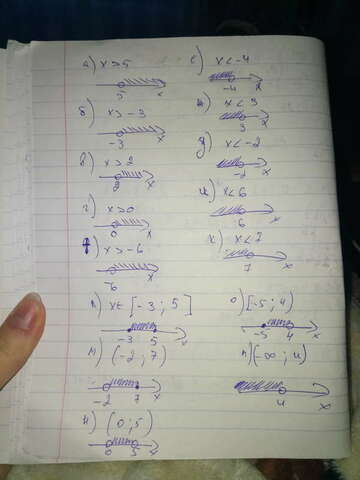 а) x > 5
5 x
б) x > -3
-3 x
в) x > 2
2 x
г) x > 0
0 x
x > -6
-6 x
е) x < -4
-4 x
x < 3
3 x
x < -2
-2 x
и) x < 6
6 x
к) x < 7
7 x
л) x ∈ [-3; 5]
-3 5 x
м) (-2; 7)
-2 7 x
н) (0; 5)
0 5 x
о) [-5; 4)
-5 4 x
п) (-∞; 4)
4 x